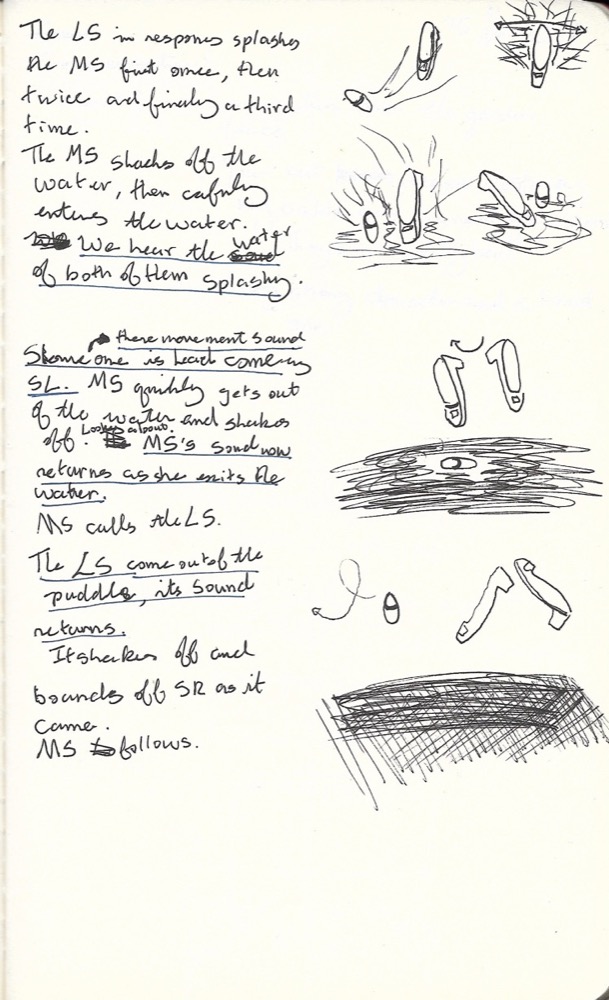 The LS in response splashes
the MS first once, then
twice and finaly a third
time.
The MS shacks off the
water, then cafully
enters the water.
We hear the water
of both of them splashy.
there movement sound
Someone is heard comeing
SL. MS quikly gets out
of the water and shakes
off. Looks about. MS's sound now
returns as she exits the
water.
MS calls the LS.
The LS come out of the
puddle, its sound
returns.
It shakes off and
bounds off SR as it
came.
MS follows.